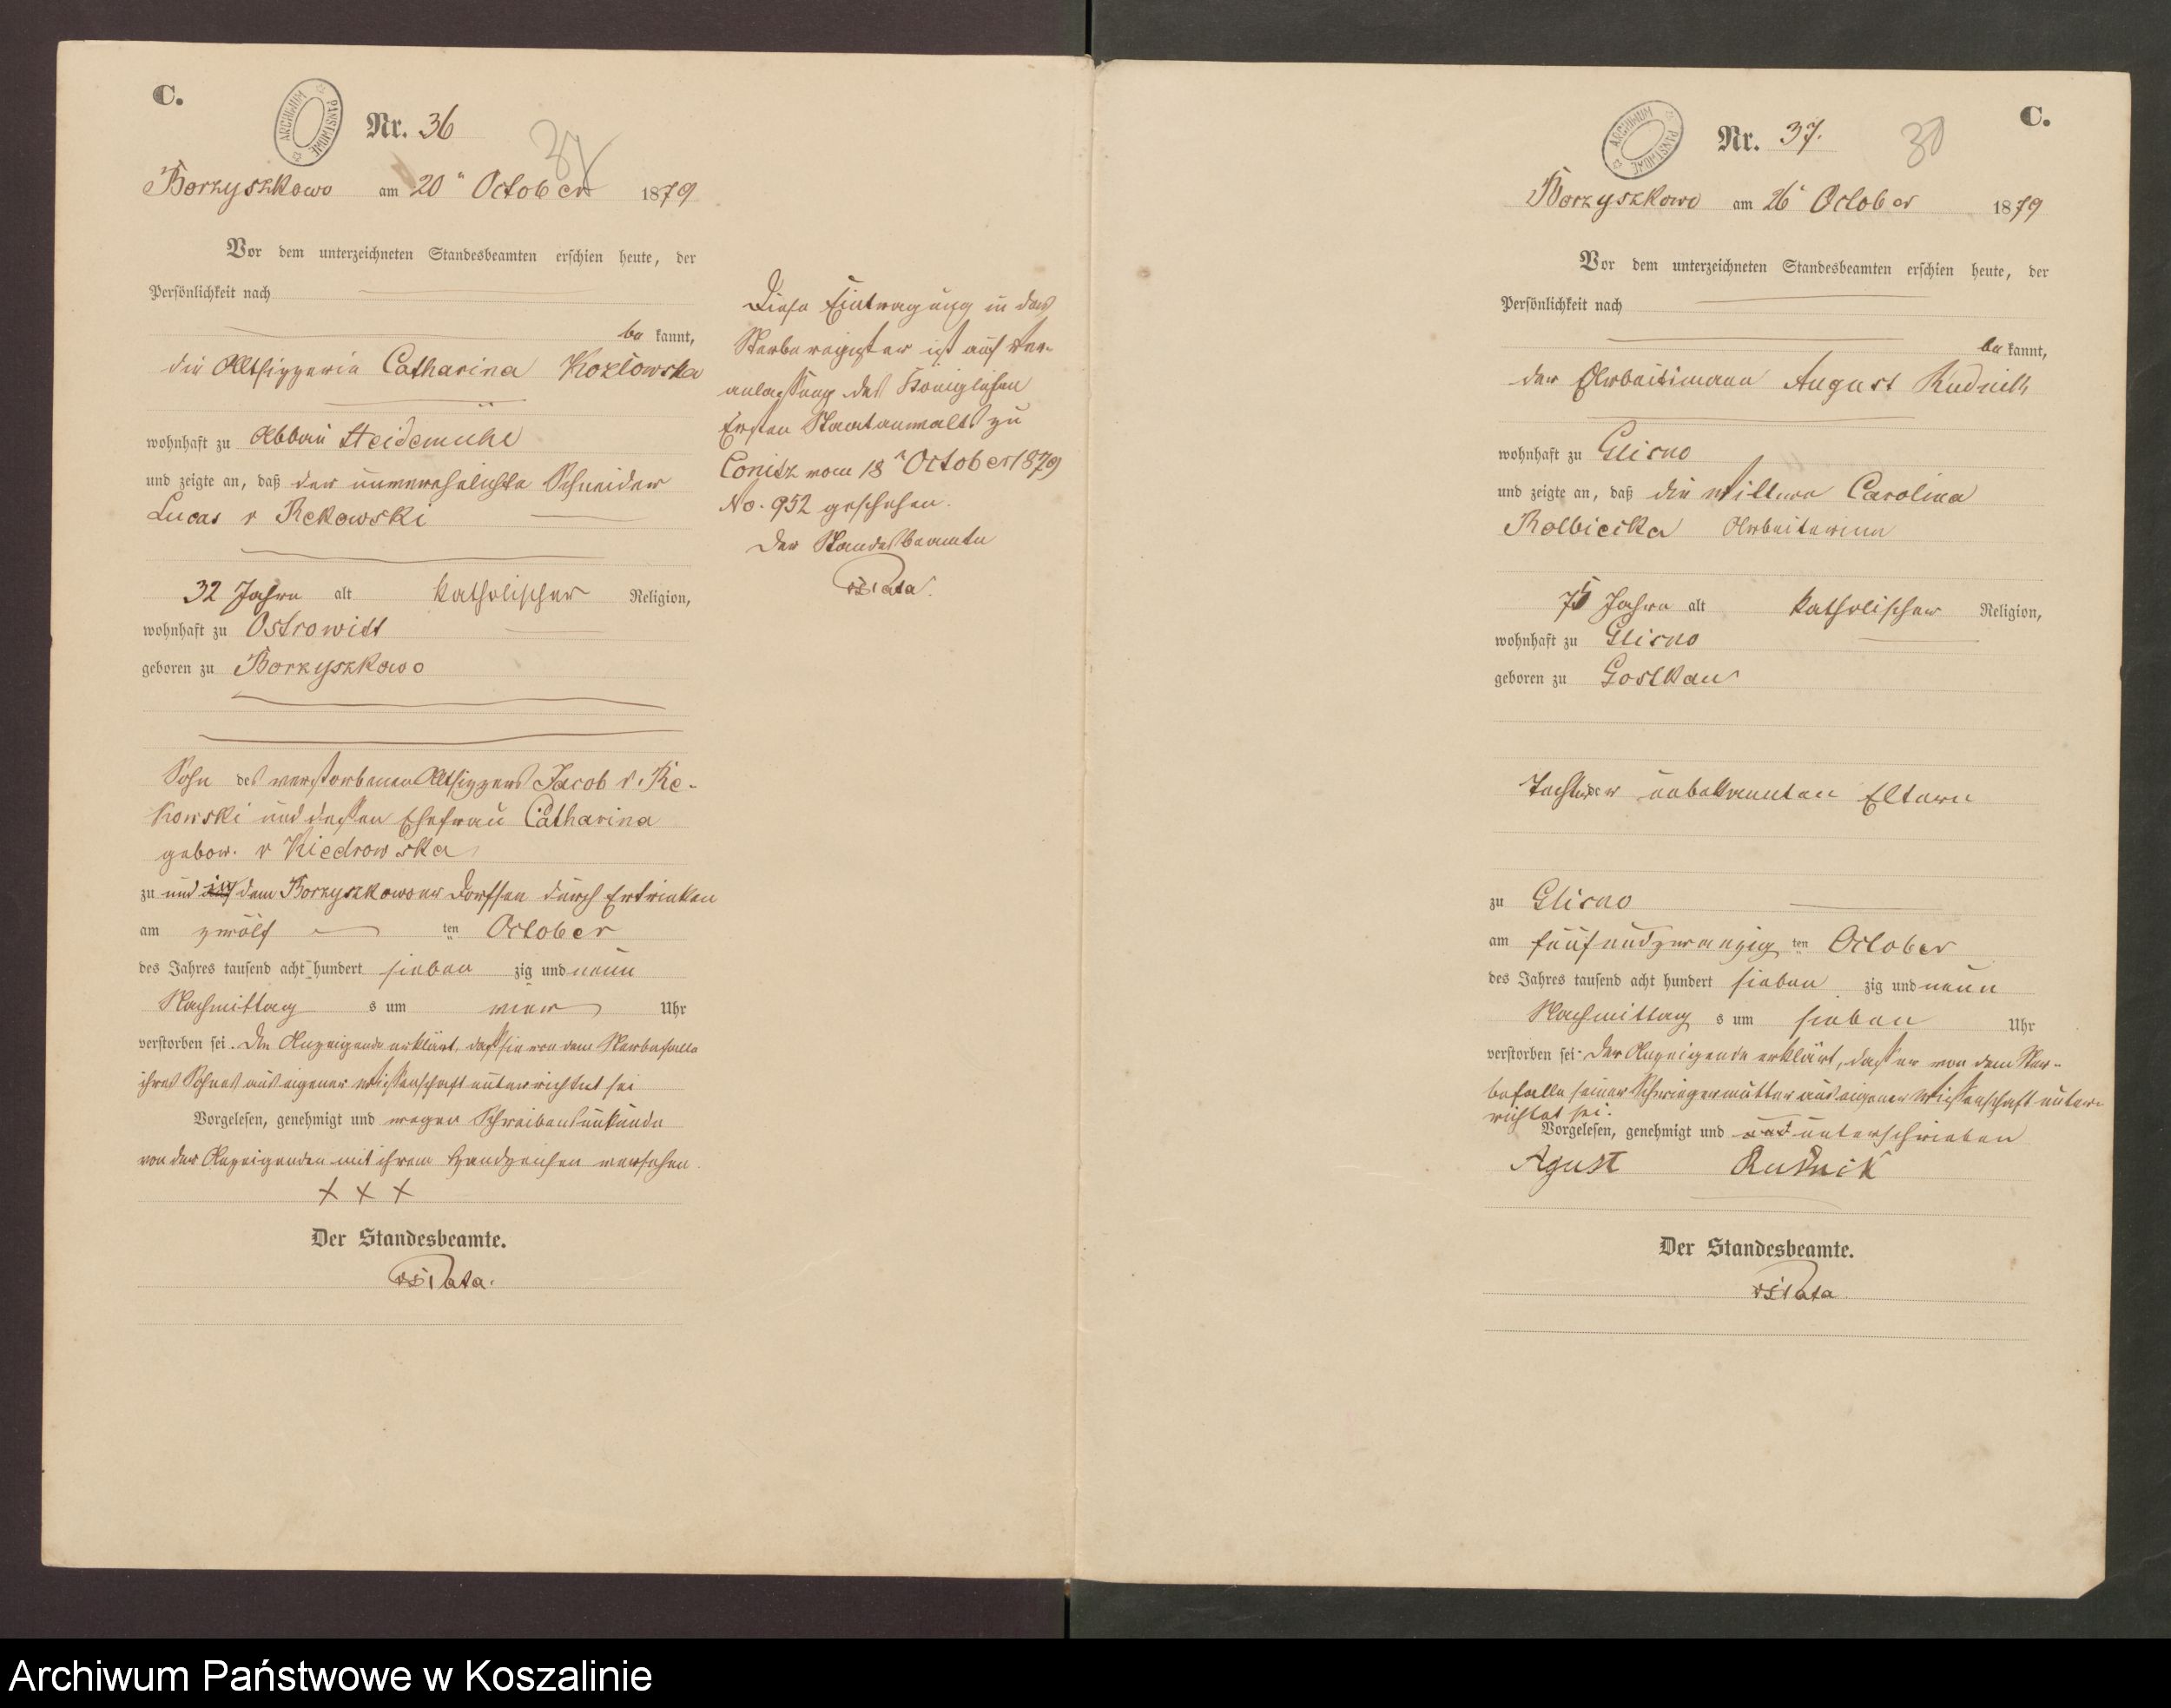 C.
ARCHIWUM PAŃSTWOWE
Nr. 36
Borzyszkowo am 20ⁿ October 1879
Vor dem unterzeichneten Standesbeamten erschien heute, der
Persönlichkeit nach
be kannt,
die Altsitzerin Catharina Kozlowska
wohnhaft zu Abbau Heidemühl
und zeigte an, daß der unverehelichte Schneider
Lucas v Rekowski
32 Jahre alt katholischer Religion,
wohnhaft zu Ostrowitt
geboren zu Borzyszkowo
Sohn des verstorbenen Altsitzers Jacob v. Re-
kowski und dessen Ehefrau Catharina
gebor. v Kiedrowska
zu und in dem Borzyszkowoer Dorfsee durch Ertrinken
am zwölf ten October
des Jahres tausend acht hundert sieben zig und neun
Nachmittag s um vier Uhr
verstorben sei. Die Anzeigende erklärt, daß sie von dem Sterbefalle
ihres Sohnes aus eigener Wissenschaft unterrichtet sei
Vorgelesen, genehmigt und wegen Schreibensunkunde
von der Anzeigenden mit ihrem Handzeichen versehen.
+ + +
Der Standesbeamte.
Diese Eintragung in das
Sterberegister ist auf Ver-
anlassung des Königlichen
Ersten Staatanwalts zu
Conitz vom 18ⁿ October 1879
No. 952 geschehen.
Der Standesbeamte
C.
ARCHIWUM PAŃSTWOWE
Nr. 37.
30
Borzyszkowo am 26ⁿ October 1879
Vor dem unterzeichneten Standesbeamten erschien heute, der
Persönlichkeit nach
be kannt,
der Arbeitsmann August Rudnik
wohnhaft zu Glisno
und zeigte an, daß die Wittwe Carolina
Kolbiecka Arbeiterinn
75 Jahre alt katholischer Religion,
wohnhaft zu Glisno
geboren zu Gostkau
Tochter der unbekannten Eltern
zu Glisno
am fünfundzwanzig ten October
des Jahres tausend acht hundert sieben zig und neun
Nachmittag s um sieben Uhr
verstorben sei. Der Anzeigende erklärt, daß er von dem Ster-
befalle seiner Schwiegermutter aus eigener Wissenschaft unter-
richtet sei.
Vorgelesen, genehmigt und unterschrieben
Agust Rudnik
Der Standesbeamte.
Archiwum Państwowe w Koszalinie